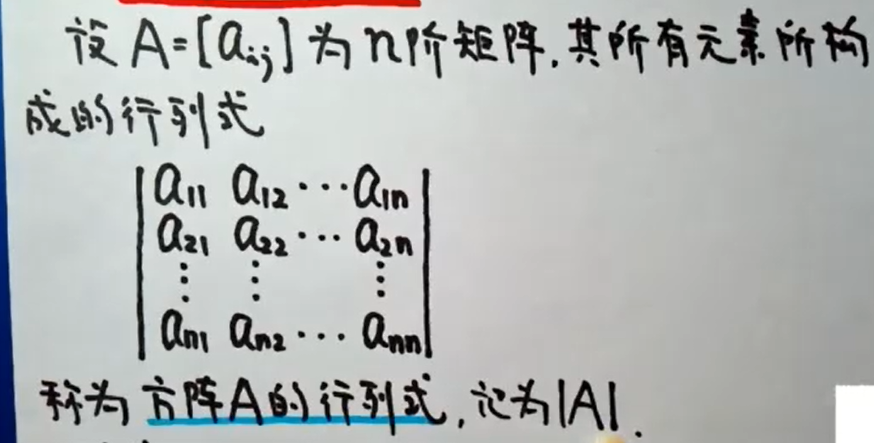 设 A=[aᵢⱼ] 为 n阶矩阵,其所有元素所构
成的行列式
| a₁₁ a₁₂ ··· a₁ₙ |
| a₂₁ a₂₂ ··· a₂ₙ |
| ⋮ ⋮ ⋮ |
| aₙ₁ aₙ₂ ··· aₙₙ |
称为方阵A的行列式,记为|A|.